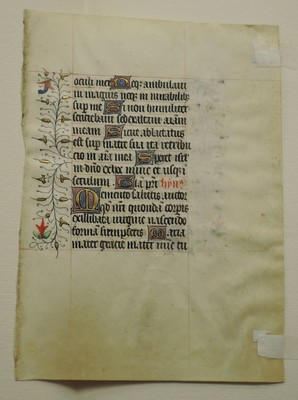 oculi mei Neqꝫ ambulaui
in magnis neqꝫ in mirabilibꝫ
sup me Si non humiliter
sentiebam sed exaltaui aiam
meam Sicut ablactatus
est sup matre sua ita retribu
cio in aia mea Speret isrl
in dno ex hoc nunc et usqꝫ i
seculum Gla pri hyn⁹
Memento salutis auctor
qd nri quondā corpis
ex illibata uirgine nascendo
formā sumpseris Maria
mater gracie mater mie tu